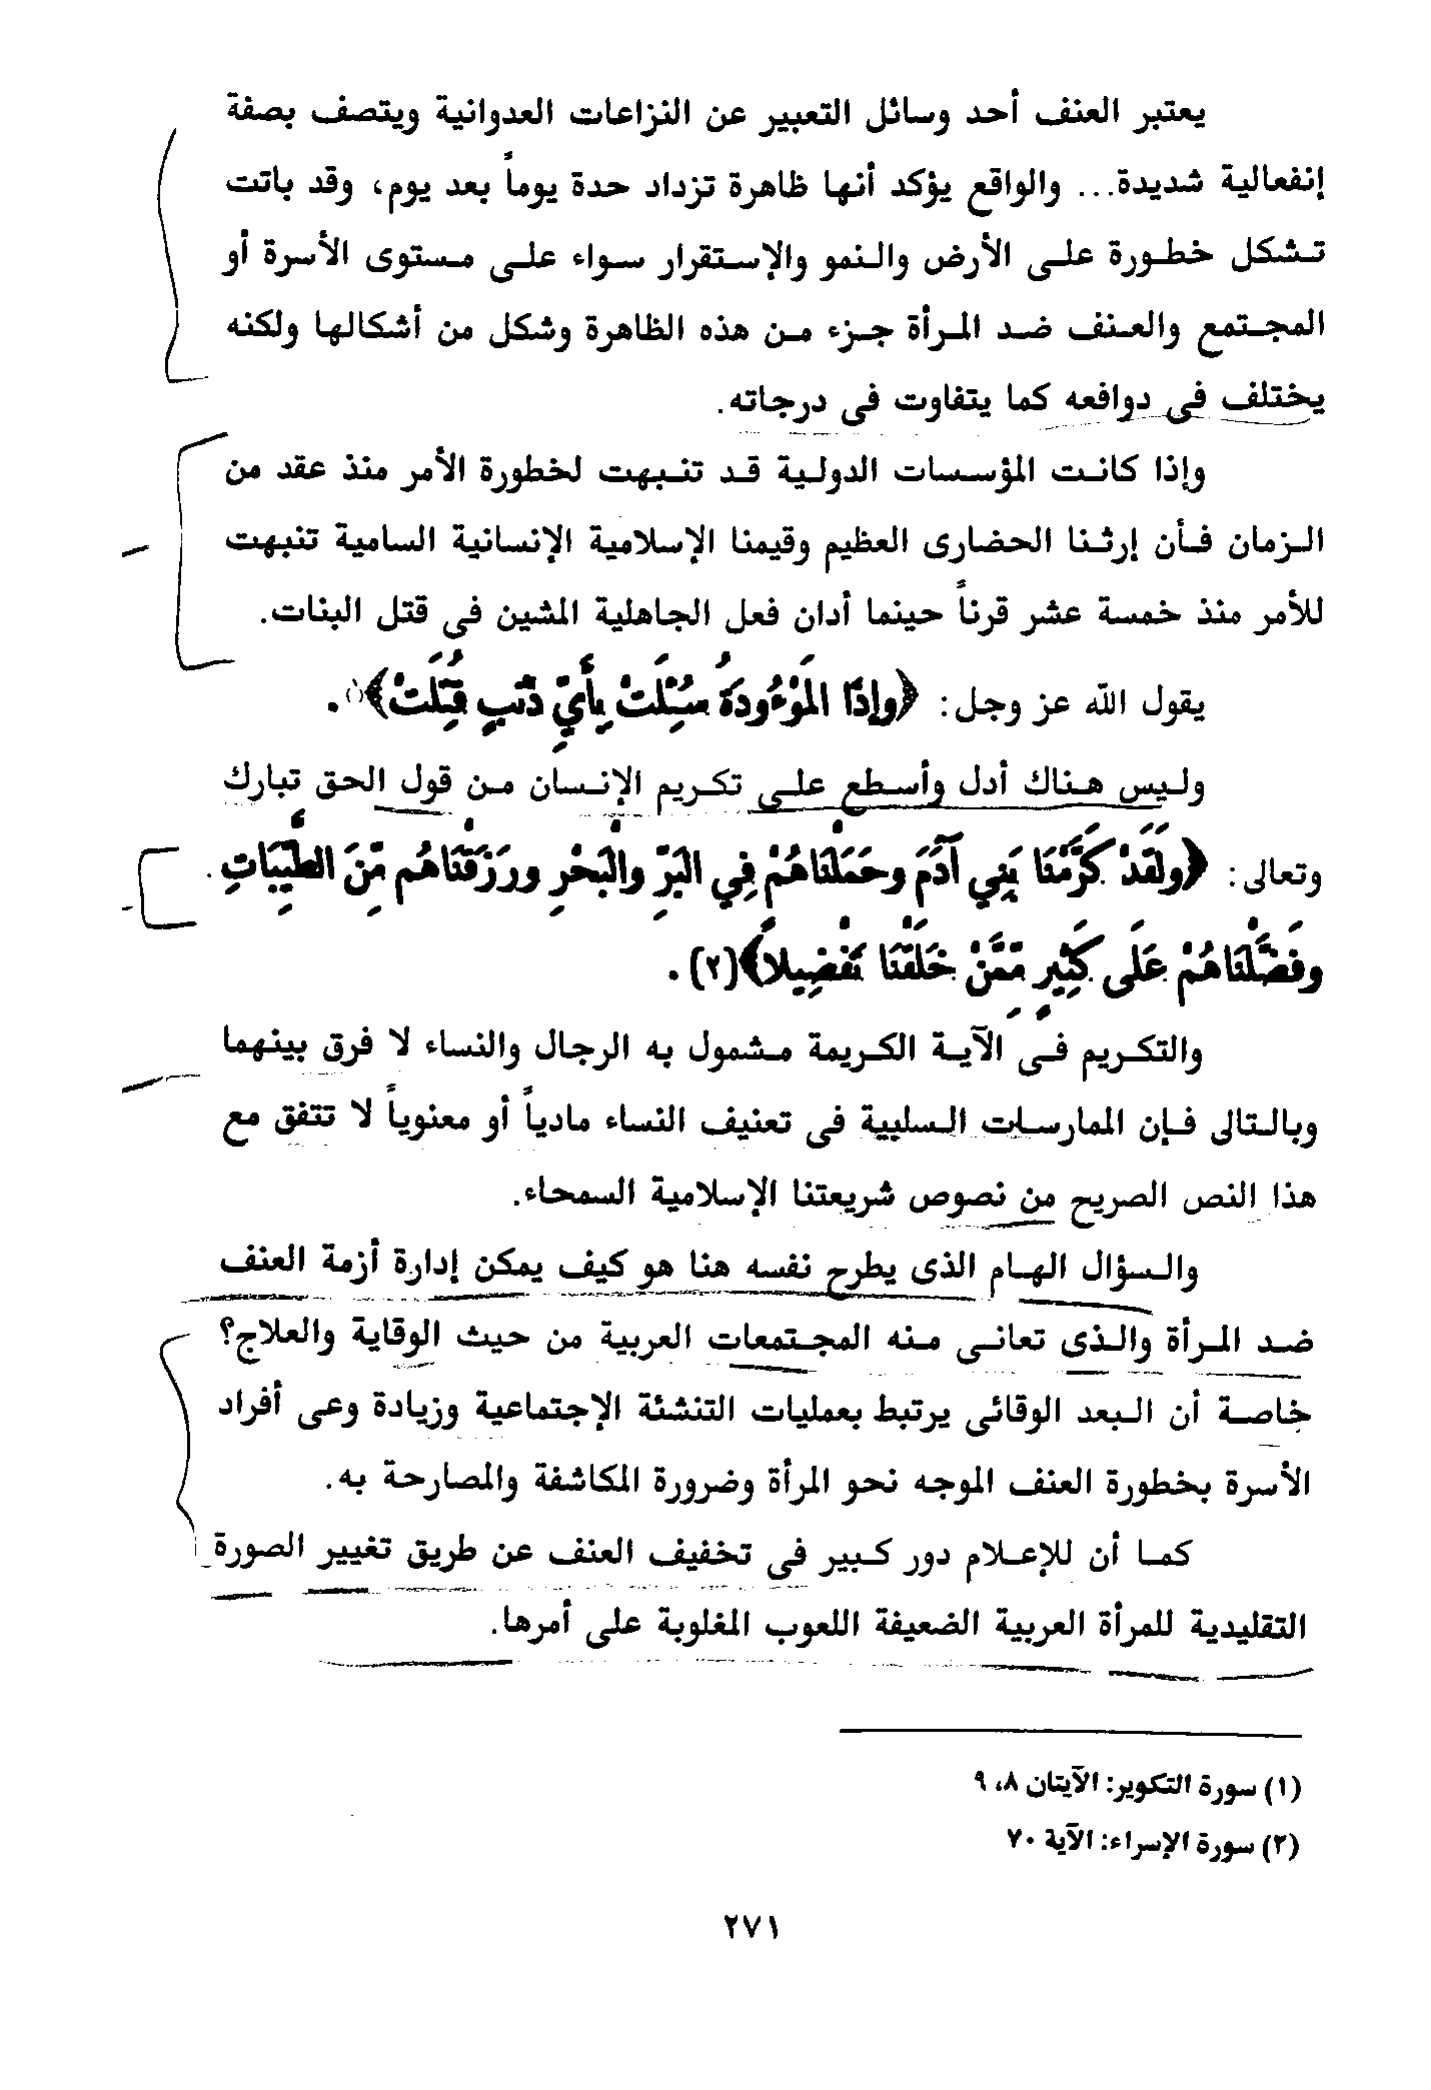 يعتبر العنف أحد وسائل التعبير عن النزاعات العدوانية ويتصف بصفة
إنفعالية شديدة... والواقع يؤكد أنها ظاهرة تزداد حدة يوماً بعد يوم، وقد باتت
تشكل خطورة على الأرض والنمو والإستقرار سواء على مستوى الأسرة أو
المجتمع والعنف ضد المرأة جزء من هذه الظاهرة وشكل من أشكالها ولكنه
يختلف فى دوافعه كما يتفاوت فى درجاته.
وإذا كانت المؤسسات الدولية قد تنبهت لخطورة الأمر منذ عقد من
الزمان فأن إرثنا الحضارى العظيم وقيمنا الإسلامية الإنسانية السامية تنبهت
للأمر منذ خمسة عشر قرناً حينما أدان فعل الجاهلية المشين فى قتل البنات.
يقول الله عز وجل: ﴿وَإِذَا الْمَوْءُودَةُ سُئِلَتْ بِأَيِّ ذَنبٍ قُتِلَتْ﴾(١).
وليس هناك أدل وأسطع على تكريم الإنسان من قول الحق تبارك
وتعالى: ﴿وَلَقَدْ كَرَّمْنَا بَنِي آدَمَ وَحَمَلْنَاهُمْ فِي الْبَرِّ وَالْبَحْرِ وَرَزَقْنَاهُم مِّنَ الطَّيِّبَاتِ
وَفَضَّلْنَاهُمْ عَلَى كَثِيرٍ مِّمَّنْ خَلَقْنَا تَفْضِيلاً﴾(٢).
والتكريم فى الآية الكريمة مشمول به الرجال والنساء لا فرق بينهما
وبالتالى فإن الممارسات السلبية فى تعنيف النساء مادياً أو معنوياً لا تتفق مع
هذا النص الصريح من نصوص شريعتنا الإسلامية السمحاء.
والسؤال الهام الذى يطرح نفسه هنا هو كيف يمكن إدارة أزمة العنف
ضد المرأة والذى تعانى منه المجتمعات العربية من حيث الوقاية والعلاج؟
خاصة أن البعد الوقائى يرتبط بعمليات التنشئة الإجتماعية وزيادة وعى أفراد
الأسرة بخطورة العنف الموجه نحو المرأة وضرورة المكاشفة والمصارحة به.
كما أن للإعلام دور كبير فى تخفيف العنف عن طريق تغيير الصورة
التقليدية للمرأة العربية الضعيفة اللعوب المغلوبة على أمرها.
(١) سورة التكوير: الآيتان ٨، ٩
(٢) سورة الإسراء: الآية ٧٠
٢٧١